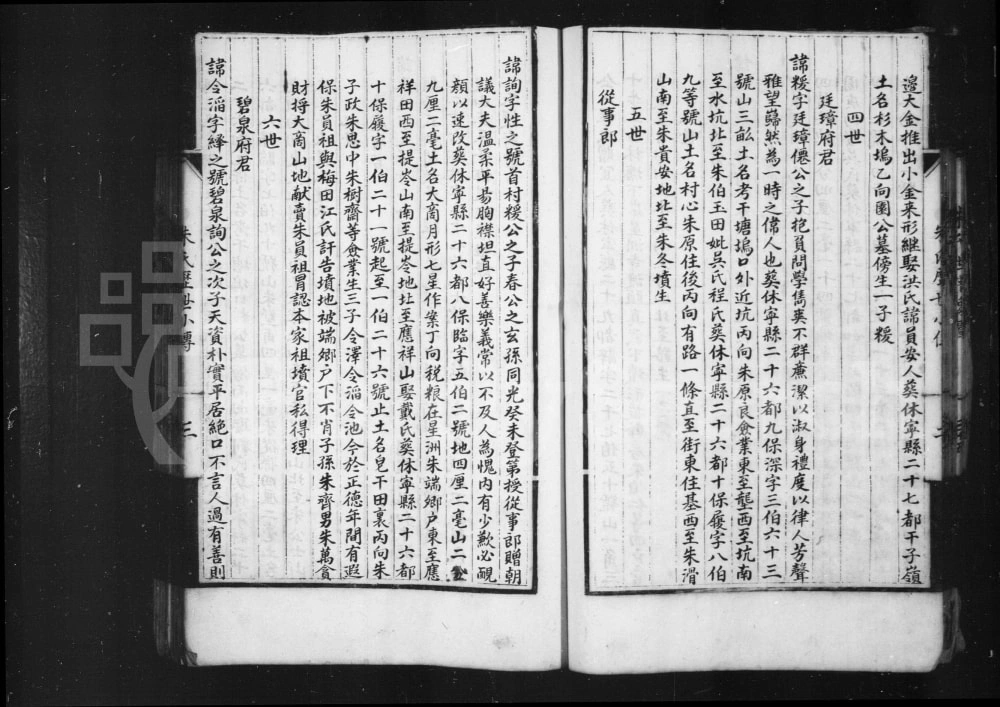 邉大金推出小金来形継娶洪氏諱員安人葵休寕縣二十七都干子嶺
土名杉木塢乙向園公墓傍生一子糉
四世
廷璋府君
諱糉字廷璋僊公之子抱負問學雋爽不群亷潔以淑身禮度以律人芳聲
雅望巋然為一時之偉人也葵休寕縣二十六都九保深字三伯六十三
號山三畝土名考干塘塢口外近坑丙向朱原良僉業東至壟西至坑南
至水坑北至朱伯玉田妣吳氏程氏葵休寕縣二十六都十保履字八伯
九等號山土名村心朱原住後丙向有路一條直至街東住基西至朱滑
山南至朱貴安地北至朱冬墳生
五世
從事郎
諱詢字性之號首村糉公之子春公之玄孫同光癸未登第授從事郎贈朝
議大夫温柔平昜胸襟坦直好善樂義常以不及人為愧内有少歉必靦
顔以速改葵休寕縣二十六都八保臨字五伯二號地四厘二毫山二
九厘二毫土名大啇月形七星作案丁向税粮在星洲朱端鄉户東至應
祥田西至提岺山南至提岺地北至應祥山娶戴氏葵休寕縣二十六都
十保履字一伯二十一號起至一伯二十六號止土名皃干田裏丙向朱
子政朱思中朱樹齋等僉業生三子令澤令滔令池今於正德年間有遐
保朱員祖與梅田江氏訐告墳地被端鄉户下不肖子孫朱齊男朱萬貪
財将大啇山地献賣朱員祖冐認本家祖墳官私得理
六世
碧泉府君
諱令滔字繹之號碧泉詢公之次子天資朴實平居絶口不言人過有善則
朱氏歷世小傳
三